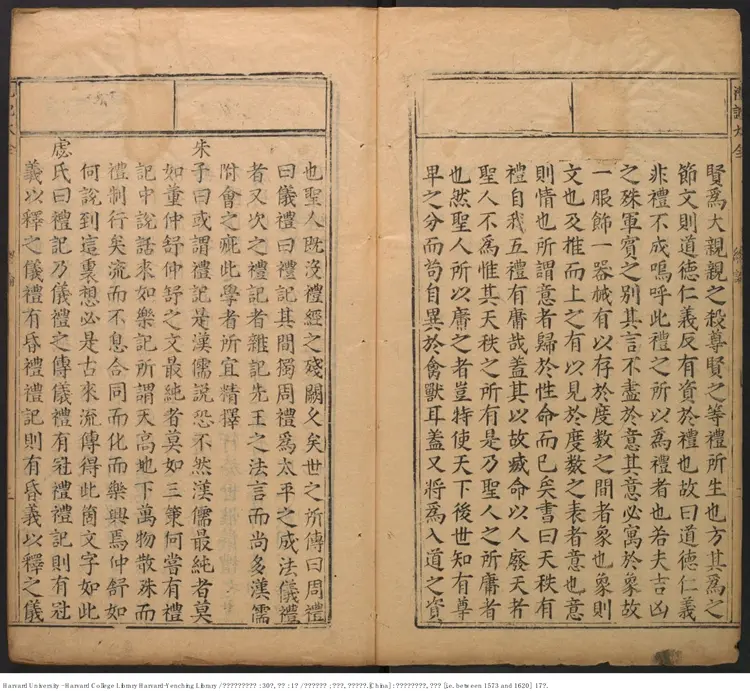 賢爲大親親之殺尊賢之等禮所生也方其爲之
節文則道德仁義反有資於禮也故曰道德仁義
非禮不成嗚呼此禮之所以爲禮者也若夫吉凶
之殊軍賓之別其言不盡於意其意必寓於象故
一服飾一器械有以存於度數之間者象也象則
文也及推而上之有以見於度數之表者意也意
則情也所謂意者歸於性命而已矣書曰天秩有
禮自我五禮有庸哉蓋其以故滅命以人廢天者
聖人不爲惟其天秩之所有是乃聖人之所庸者
也然聖人所以庸之者豈特使天下後世知有尊
卑之分而苟自異於禽獸耳蓋又將爲入道之資
也聖人既沒禮經之殘闕久矣世之所傳曰周禮
曰儀禮曰禮記其間獨周禮爲太平之成法儀禮
者又次之禮記者雜記先王之法言而尚多漢儒
附會之疵此學者所宜精擇
朱子曰或謂禮記是漢儒說恐不然漢儒最純者莫
如董仲舒仲舒之文最純者莫如三策何嘗有禮
記中說話來如樂記所謂天高地下萬物散殊而
禮制行矣流而不息合同而化而樂興焉仲舒如
何說到這裏想必是古來流傳得此箇文字如此
虙氏曰禮記乃儀禮之傳儀禮有冠禮禮記則有冠
義以釋之儀禮有昏禮禮記則有昏義以釋之儀
禮記大全
Harvard University - Harvard College Library Harvard-Yenching Library / ????????? : 30?, ?? : 1? / ?????? ; ???, ?????.[China] : ????????, ??? [i.e. between 1573 and 1620] 17?.